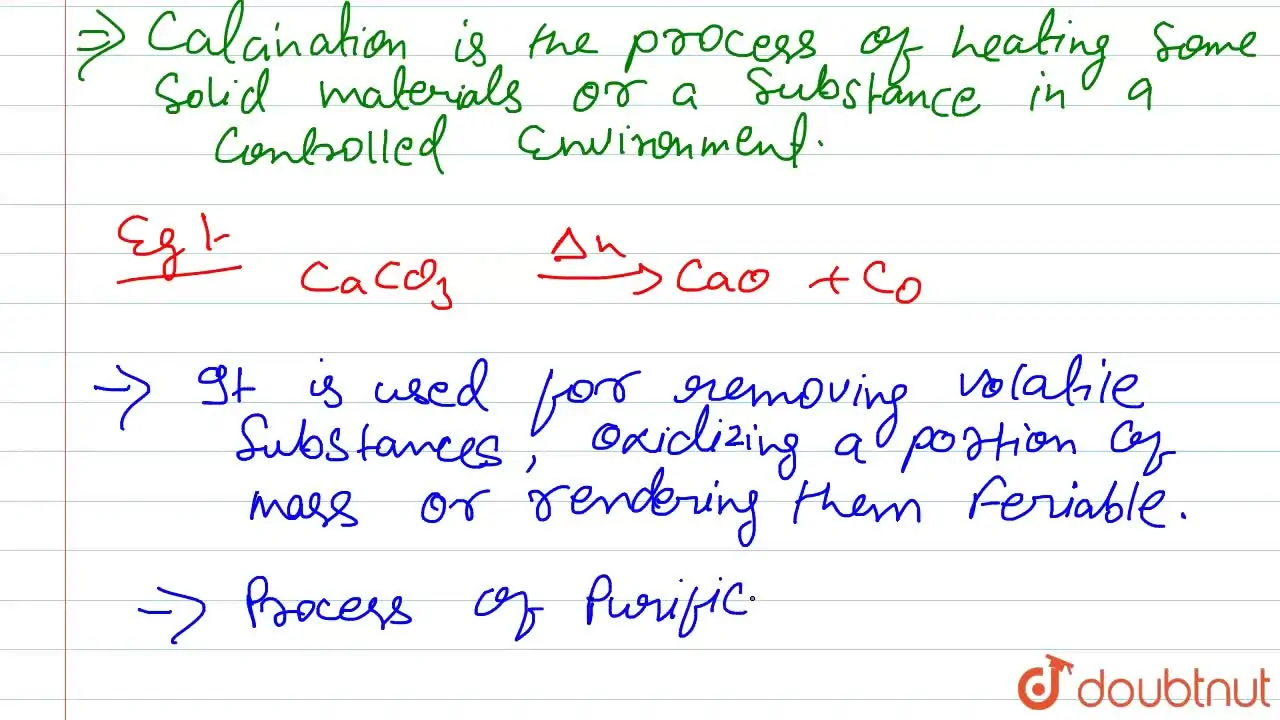 ⇒ Calcination is the process of heating some
solid materials or a substance in a
controlled Environment.
Eg :-
CaCO3 Δn→ CaO + CO
→ It is used for removing volatile
substances, oxidizing a portion of
mass or rendering them feriable.
→ Process of Purific
doubtnut